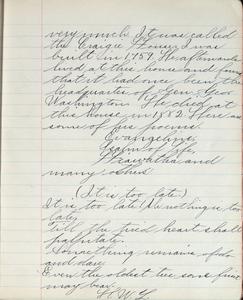 very much. It was called
the Craigie House, was
built in 1759. He afterwards
lived at this house and found
that it had once been the
headquarters of Gen. Geo
Washington. He died at
this house in 1882. Here are
some of his poems.
Evangeline,
Psalm of life,
Hiawatha and
many others
(It is too late)
It is too late! Ah nothing is too
late,
till the tired heart shall
palpitate.
Something remains of do
and dare
Even the oldest tree some fruit
may bear
H. W. L.